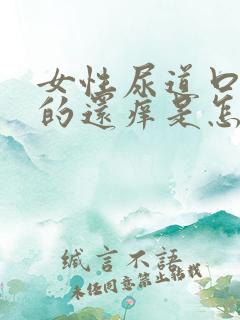 女性尿道口
的还痒是怎
缄言不語
未经同意禁止转载